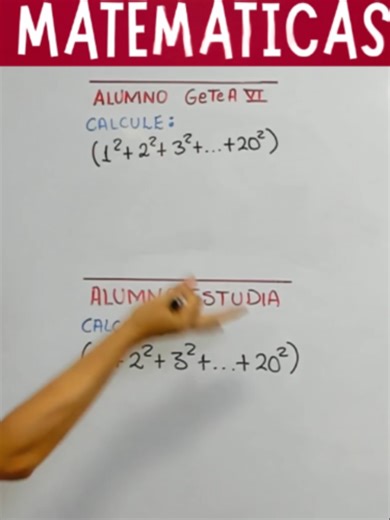 MATEMATICAS
ALUMNO GeTeA VI
CALCULE:
(1²+2²+3²+...+20²)
ESTUDIA
2²+3²+...+20²)